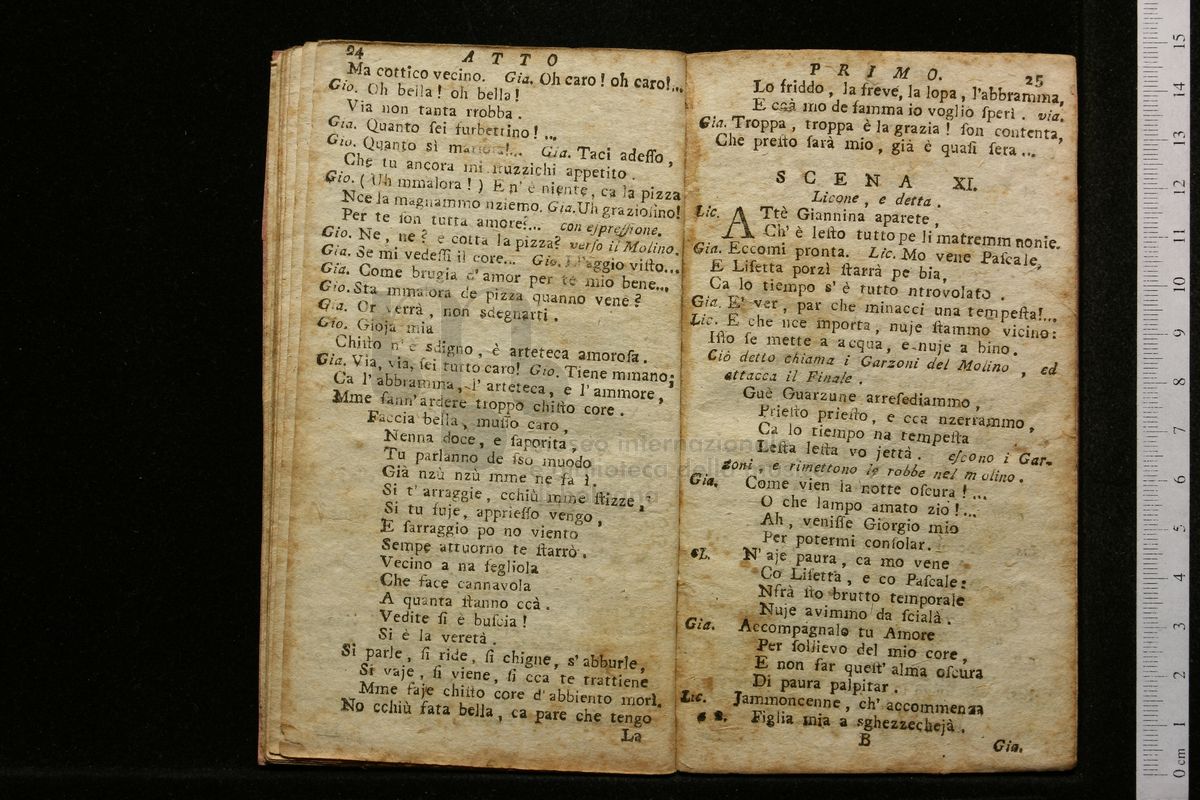 24
ATTO
Ma cottico vecino. Gia. Oh caro! oh caro!...
Gio. Oh bella! oh bella!
Via non tanta rrobba.
Gia. Quanto ſei furbettino!...
Gio. Quanto sì Gia. Taci adeſſo,
Che tu ancora mi ſtuzzichi appetito.
Gio. (Uh mmalora!) E n'è niente, ca la pizza
Nce la magnammo nziemo. Gia. Uh grazioſino!
Per te ſon tutta amore!... con eſpreſſione.
Gio. Ne, ne? e cotta la pizza? verſo il Molino.
Gia. Se mi vedeſſi il core... Gio. L'aggio viſto...
Gia. Come brugia d'amor per te mio bene...
Gio. Sta mmalora de pizza quanno vene?
Gia. Or verrà, non sdegnarti.
Gio. Gioja mia
Chiſto n'è sdigno, è arteteca amoroſa.
Gia. Via, via, ſei tutto caro! Gio. Tiene mmano;
Ca l'abbramma, l'arteteca, e l'ammore,
Mme fann'ardere troppo chiſto core.
Faccia bella, muſſo caro,
Nenna doce, e ſaporita,
Tu parlanno de ſſo muodo
Già nzù nzù mme ne fa ì.
Si t'arraggie, cchiù mme ſtizze,
Si tu fuje, apprieſſo vengo,
E ſarraggio po no viento
Sempe attuorno te ſtarrò.
Vecino a na ſegliola
Che face cannavola
A quanta ſtanno ccà.
Vedite ſi è buſcia!
Si è la veretà.
Si parle, ſi ride, ſi chigne, s'abburle,
Si vaje, ſi viene, ſi cca te trattiene
Mme faje chiſto core d'abbiento morì.
No cchiù fata bella, ca pare che tengo
La
PRIMO.
25
Lo friddo, la freve, la lopa, l'abbramma,
E ccà mo de famma io voglio ſperì. via.
Gia. Troppa, troppa è la grazia! ſon contenta,
Che preſto ſarà mio, già è quaſi ſera...
SCENA XI.
Licone, e detta.
Lic. ATtè Giannina aparete,
Ch'è leſto tutto pe li matremmonie.
Gia. Eccomi pronta. Lic. Mo vene Paſcale,
E Liſetta porzì ſtarrà pe bia,
Ca lo tiempo s'è tutto ntrovolato.
Gia. E' ver, par che minacci una tempeſta!...
Lic. E che nce mporta, nuje ſtammo vicino:
Iſto ſe mette a acqua, e nuje a bino.
Ciò detto chiama i Garzoni del Molino, ed
attacca il Finale.
Guè Guarzune arreſediammo,
Prieſto prieſto, e cca nzerrammo,
Ca lo tiempo na tempeſta
Leſta leſta vo jettà. eſcono i Gar-
zoni, e rimettono le robbe nel molino.
Gia. Come vien la notte oſcura!...
O che lampo amato zio!...
Ah, veniſſe Giorgio mio
Per potermi conſolar.
L. N'aje paura, ca mo vene
Co Liſetta, e co Paſcale:
Nfrà ſto brutto temporale
Nuje avimmo da ſcialà.
Gia. Accompagnalo tu Amore
Per ſollievo del mio core,
E non far queſt'alma oſcura
Di paura palpitar.
Lic. Jammoncenne, ch'accommenza
a 2. Figlia mia a sghezzechejà.
B
Gia.